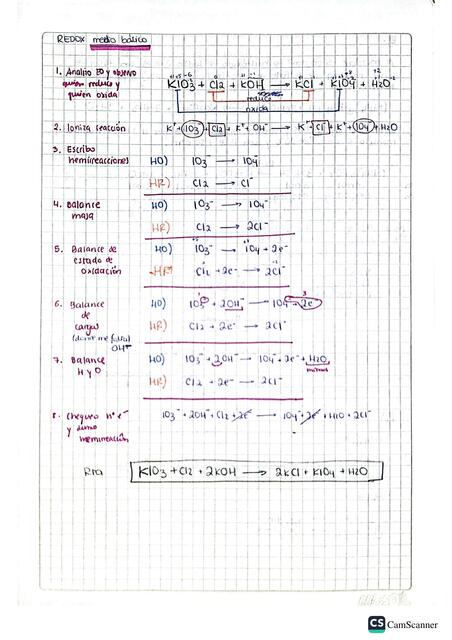 REDOX medio básico
1. Analizo EO y observo quien reduce y quien oxida
KIO3 + Cl2 + KOH → KCl + KIO4 + H2O
reduce
oxida
2. Ionizo reacción K+ + IO3- + Cl2 + K+ + OH- → K+ + Cl- + K+ + IO4- + H2O
3. Escribo hemirreacciones
HO) IO3- → IO4-
HR) Cl2 → Cl-
4. Balance masa
HO) IO3- → IO4-
HR) Cl2 → 2Cl-
5. Balance de estado de oxidación
HO) IO3- → IO4- + 2e-
HR) Cl2 + 2e- → 2Cl-
6. Balance de cargas
OH-
HO) IO3- + 2OH- → IO4- + 2e-
HR) Cl2 + 2e- → 2Cl-
7. Balance H y O
HO) IO3- + 2OH- → IO4- + 2e- + H2O
HR) Cl2 + 2e- → 2Cl-
8. Chequeo n° e- y sumo hemirreacción
IO3- + 2OH- + Cl2 + 2e- → IO4- + 2e- + H2O + 2Cl-
Rta KIO3 + Cl2 + 2KOH → 2KCl + KIO4 + H2O
CS CamScanner